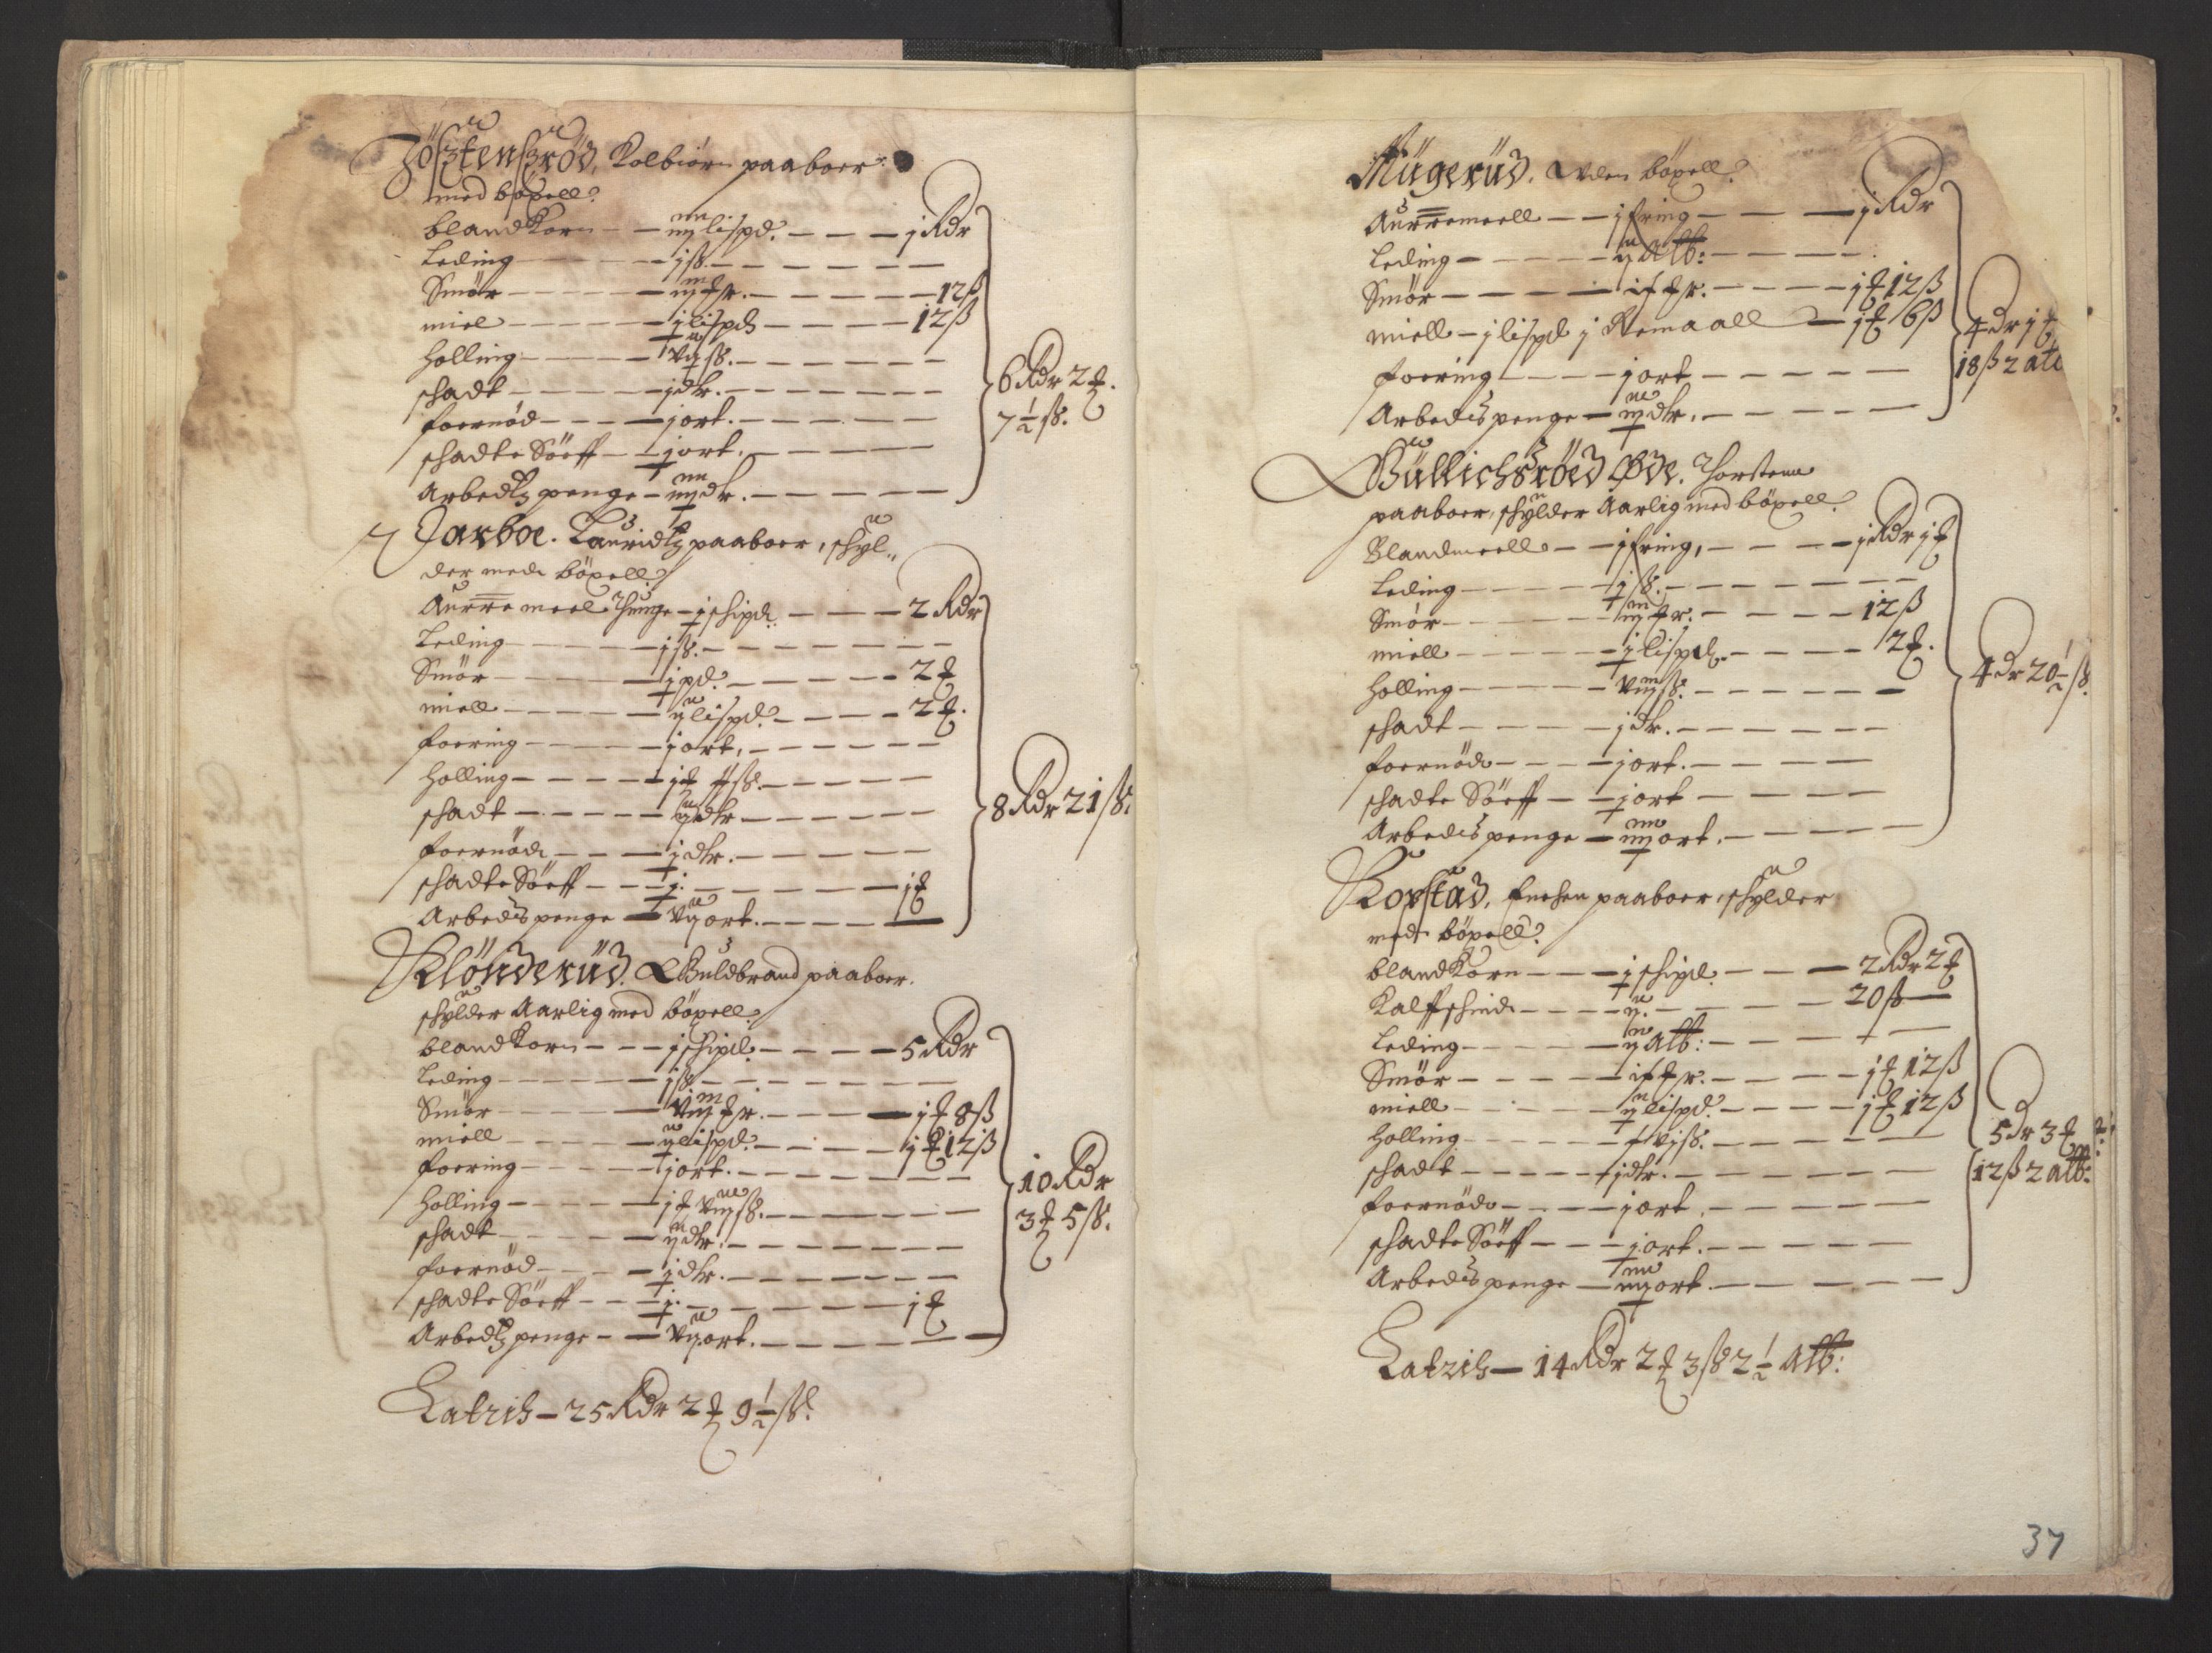 Jösztenszröd, Kolbiörn paaboer
med böxell.
blandKorn — iiij lispd. — j Rdr
Leding — j ß. —
Smör — iij mkr. — 12 ß
miel — j lispd — 12 ß
Holling — vij ß. —
schadt — j dlr. —
foernöd — j ort. —
schadte Söeff — j ort. —
Arbedtz penge — iiij dlr. —
6 Rdr 2 ₰.
7 ½ ß.
Jarboe. Lauridtz paaboer, schyl„
der med böxell
Aurremeel Thunge — j schipd — 2 Rdr
Leding — j ß. —
Smör — j pd. — 2 ₰
miell — ij lispd. — 2 ₰.
foering — j ort. —
Holling — j ₰ ß. —
schadt — ij dlr —
foernöd — j dlr. —
schadte Söeff — j. — j ₰
Arbeds penge — vij ort. —
8 Rdr 21 ß.
Klönderüd. Guldbrand paaboer.
schylder Aarlig med böxell.
blandKorn — j schipd. — 5 Rdr
Leding — j ß —
Smör — viij mkr. — j ₰ 8 ß
miell — ij lispd. — j ₰ 12 ß
foering — j ort. —
Holling — j ₰ viij ß. —
schadt — ij dlr. —
foernöd — j dlr. —
schadte Söeff — j. — j ₰
Arbedtz penge — vij ort. —
10 Rdr
3 ₰ 5 ß.
Latris — 25 Rdr 2 ₰ 9 ½ ß.
Mügerüd. Uden böxell.
Aurremeell — j fring — j Rdr
Leding — ij alb: —
Smör — if mkr. — j ₰ 12 ß
miell — j lispd j Remaall — j ₰ 6 ß
foering — j ort —
Arbeds penge — iij dlr. —
4 dr j ₰
18 ß 2 alb
Güllichsröed Øde. Thorstenn
paaboer, schylder Aarlig med böxell.
Blandmeell — j fring, — j Rdr j ₰
Leding — j ß. —
Smör — iij mkr. — 12 ß
miell — j lispd. — 2 ₰.
Holling — viij ß. —
schadt — j dlr. —
foernöd — j ort. —
schadte Söeff — j ort —
Arbeds penge — iiij ort. —
4 dr 20 ½ ß.
Kopstad, Enchen paaboer, schylder
med böxell.
blandKorn — j schipd. — 2 Rdr 2 ₰
Kalffschind — ij. — 20 ß —
Leding — ij alb: —
Smör — if mkr. — j ₰ 12 ß
miell — ij lispd. — j ₰ 12 ß
Holling — vj ß. —
schadt — j dlr. —
foernöd — j ort. —
schadte Söeff — j ort. —
Arbeds penge — iiij ort. —
5 dr 3 ₰
12 ß 2 alb.
Latris — 14 Rdr 2 ₰ 3 ß 2 ½ Alb:
37